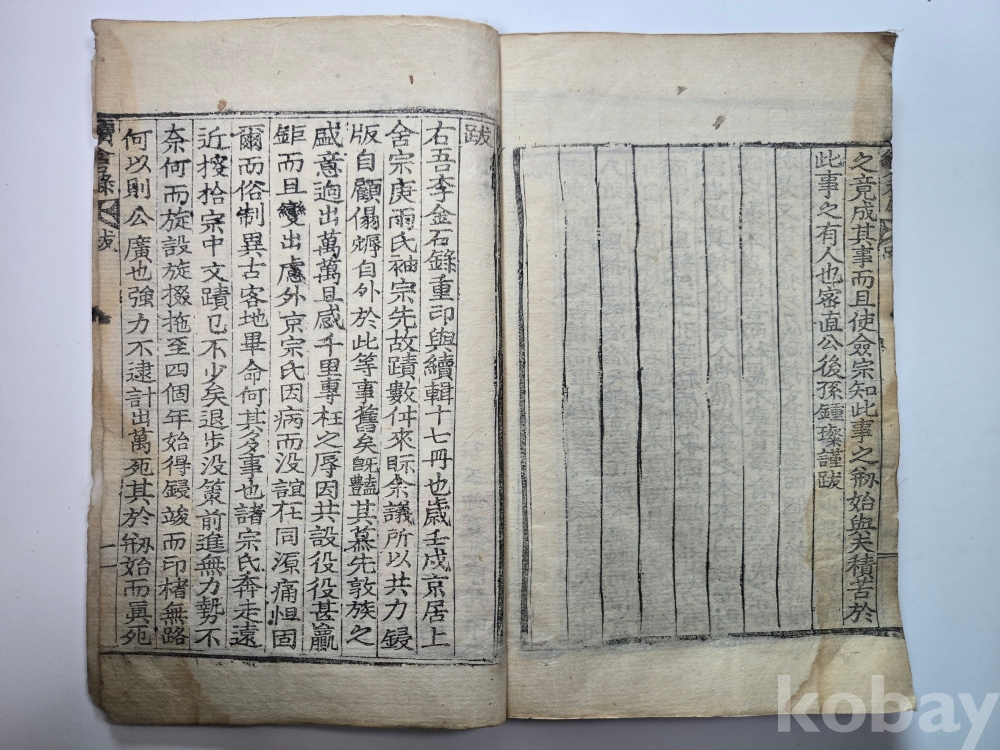 之竟成其事而且使僉宗知此事之刱始與夫積苦於
此事之有人也密直公後孫鍾謹跋
跋
右吾李金石錄重印與續輯十七冊也歲壬戌京居上
舍宗庚雨氏袖宗先故蹟數件來眎余議所以共力鋟
版自顧自外於此等事舊矣旣豔其慕先敦族之
盛意逈出萬萬且感千里專枉之辱因共設役役甚贏
鉅而且變出慮外京宗氏因病而沒誼在同源痛怛固
爾而俗制異古客地畢命何其多事也諸宗氏奔走遠
近搜拾宗中文蹟已不少矣退步没策前進無力勢不
奈何而旋設旋掇拖至四個年始得鋟竣而印楮無路
何以則公廣也強力不逮計出萬死其於刱始而眞死
跋
kobay